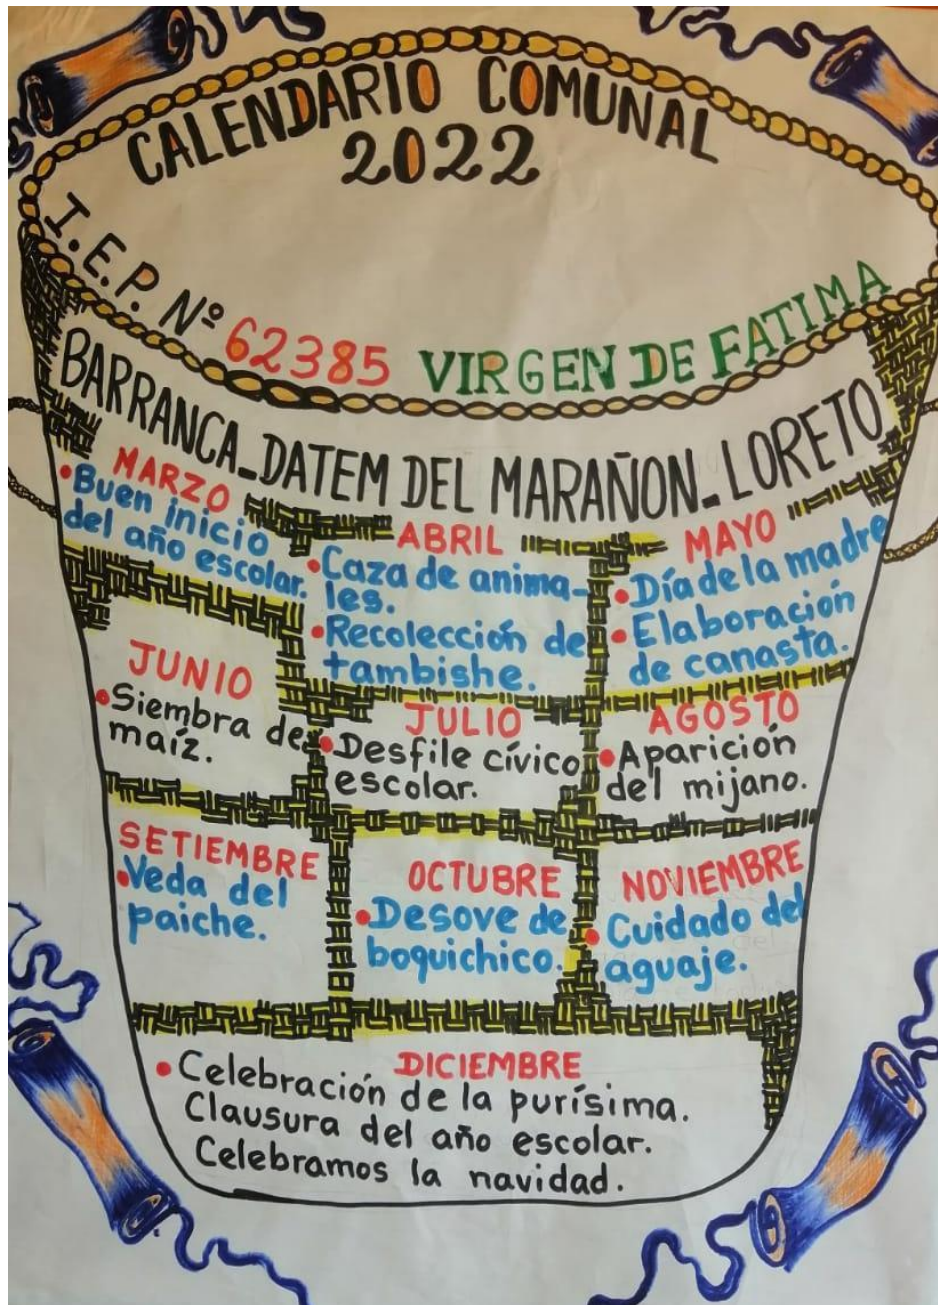 CALENDARIO COMUNAL
2022
I.E.P. Nº 62385 VIRGEN DE FATIMA
BARRANCA_DATEM DEL MARAÑON_LORETO
MARZO
• Buen inicio
del año escolar.
ABRIL
• Caza de anima-
les.
• Recolección de
tambishe.
MAYO
• Día de la madre
• Elaboración
de canasta.
JUNIO
• Siembra de
maíz.
JULIO
• Desfile cívico
escolar.
AGOSTO
• Aparición
del mijano.
SETIEMBRE
• Veda del
paiche.
OCTUBRE
• Desove de
boquichico.
NOVIEMBRE
• Cuidado del
aguaje.
DICIEMBRE
• Celebración de la purísima.
Clausura del año escolar.
Celebramos la navidad.